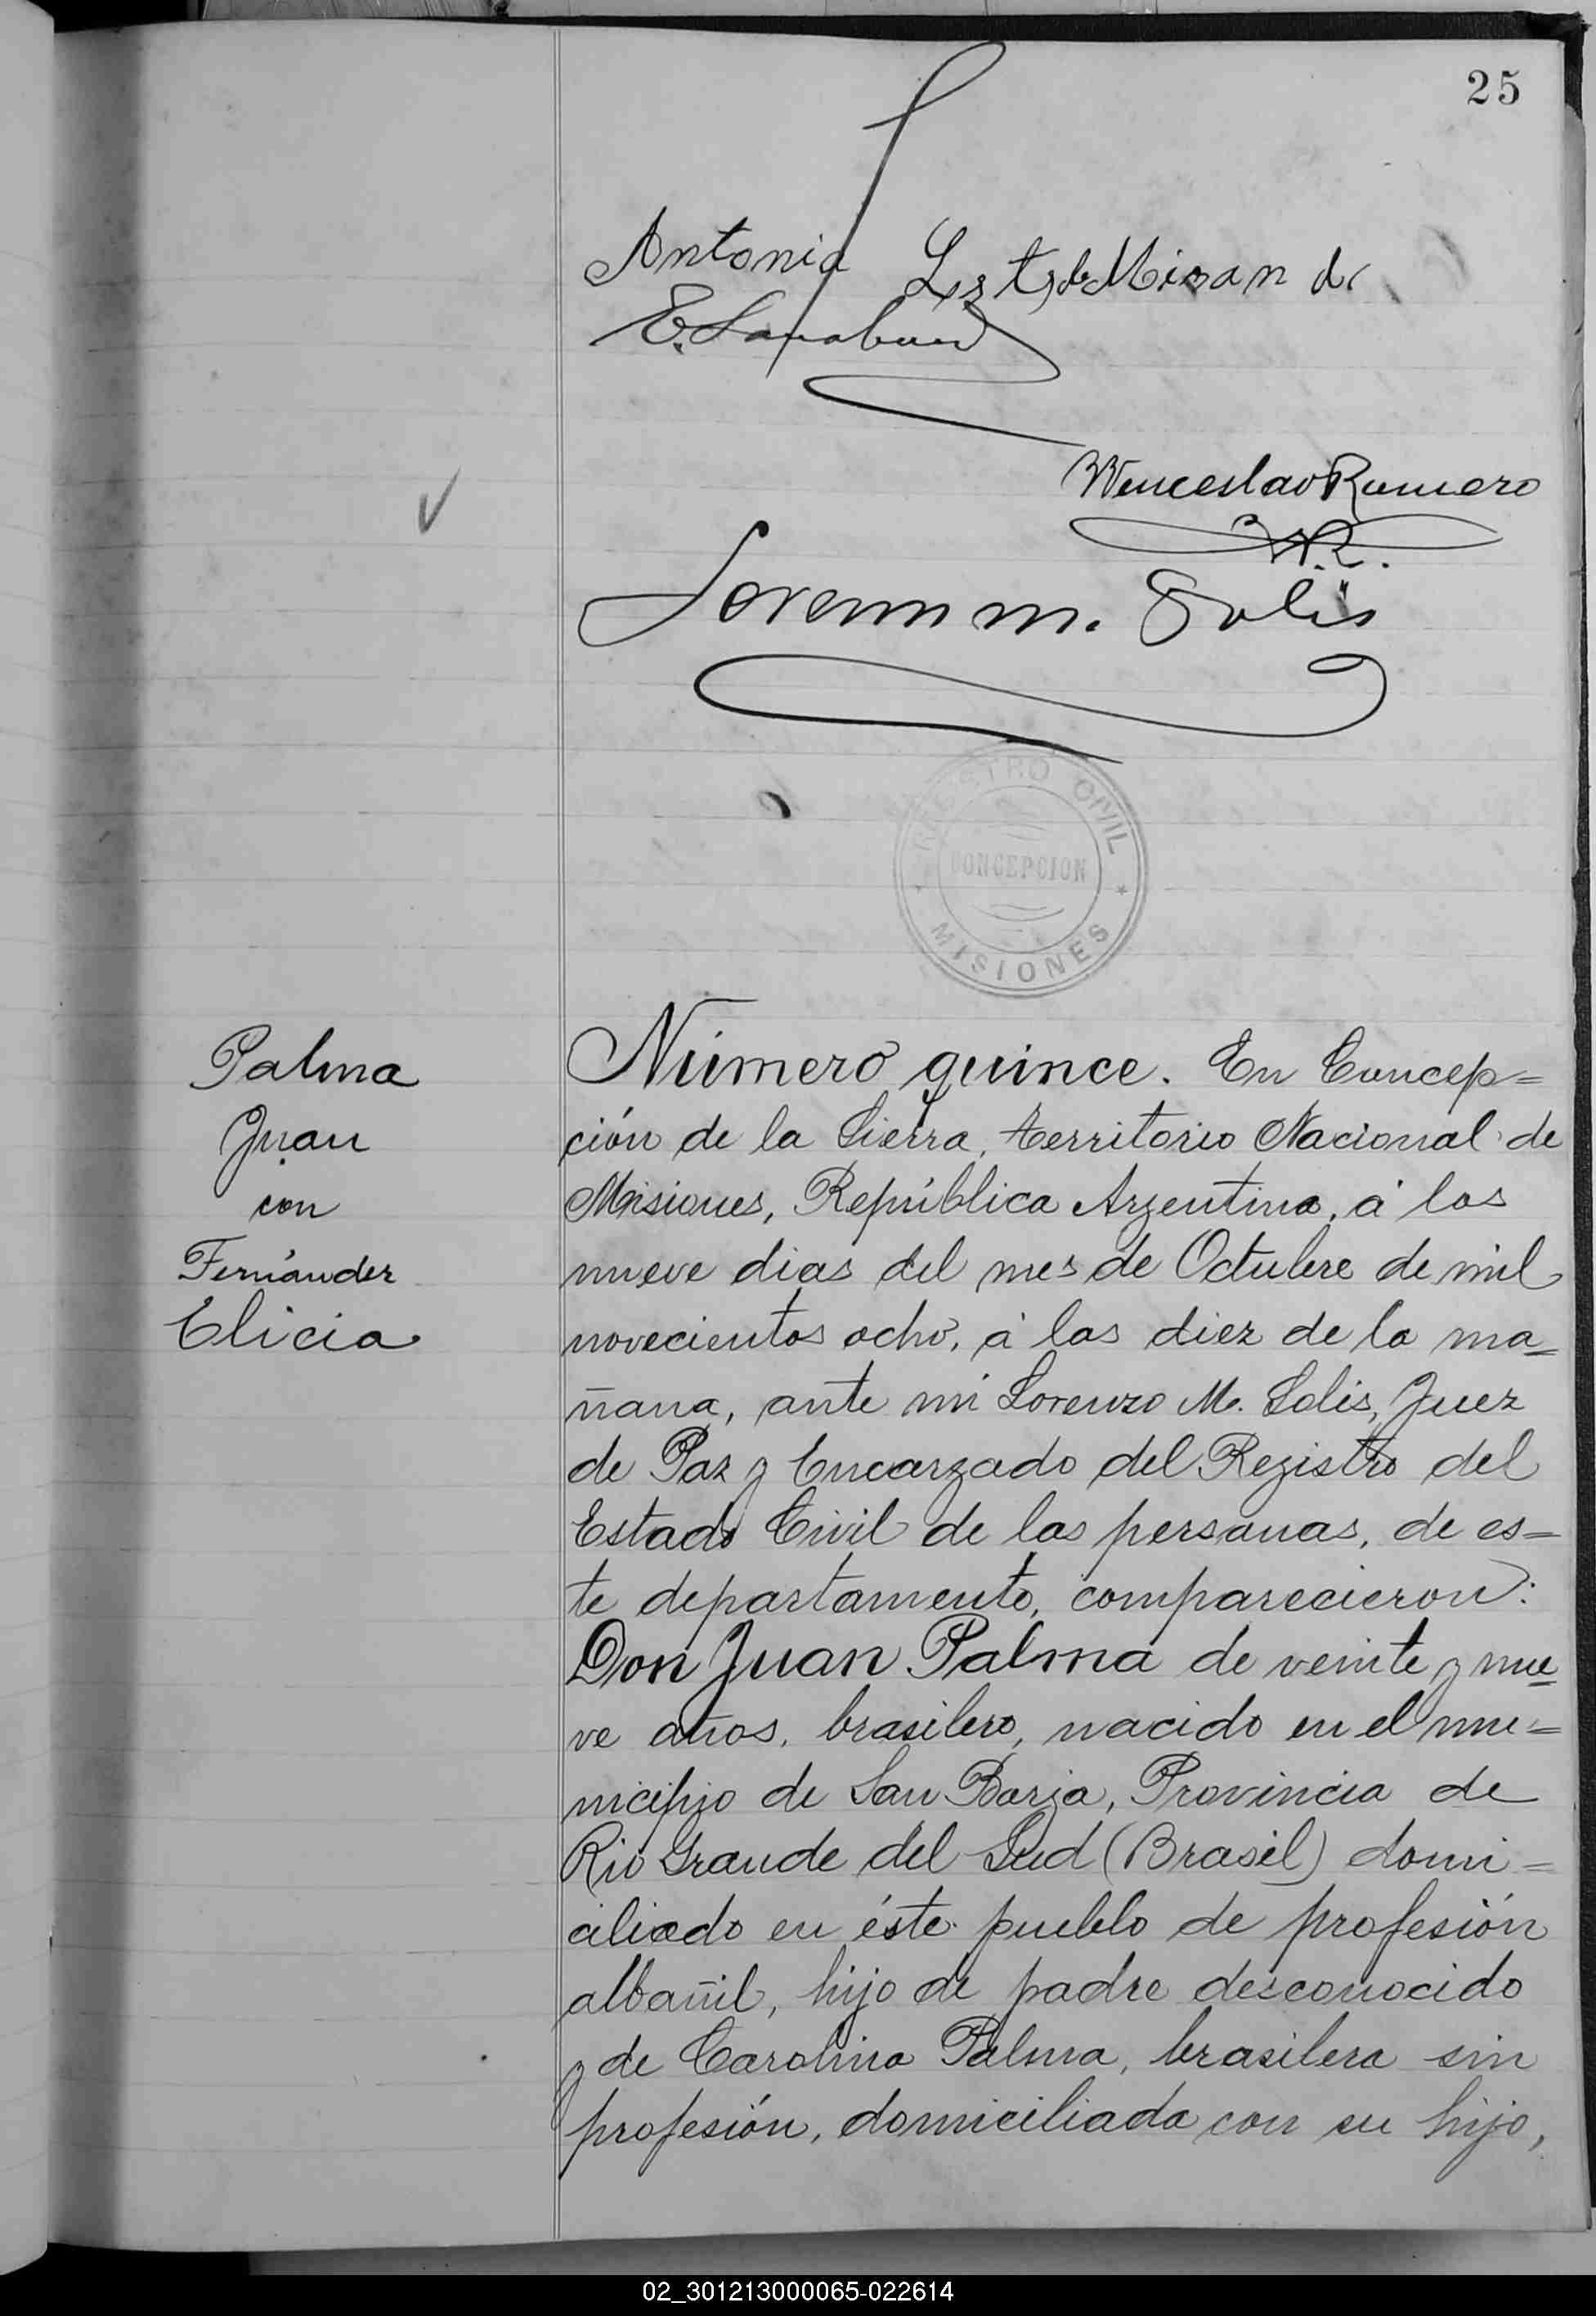 25
Antonia de Miran da
E. Sanabria
Wenceslao Romero
W.R.
Lorenzo M. Solis
REGISTRO CIVIL
CONCEPCION
MISIONES
Palma
Juan
con
Fernández
Elicia
Número quince. En Concep=
ción de la Sierra, territorio Nacional de
Misiones, República Argentina, á los
nueve dias del mes de Octubre de mil
novecientos ocho, á las diez de la ma=
ñana, ante mi Lorenzo M. Solis, Juez
de Paz y Encargado del Registro del
Estado Civil de las personas, de es=
te departamento, comparecieron:
Don Juan Palma de veinte y nue=
ve años, brasilero, nacido en el mu=
nicipio de San Borja, Provincia de
Rio Grande del Sud (Brasil) domi=
ciliado en éste pueblo de profesión
albañil, hijo de padre desconocido
y de Carolina Palma, brasilera sin
profesión, domiciliada con su hijo,
02_301213000065-022614